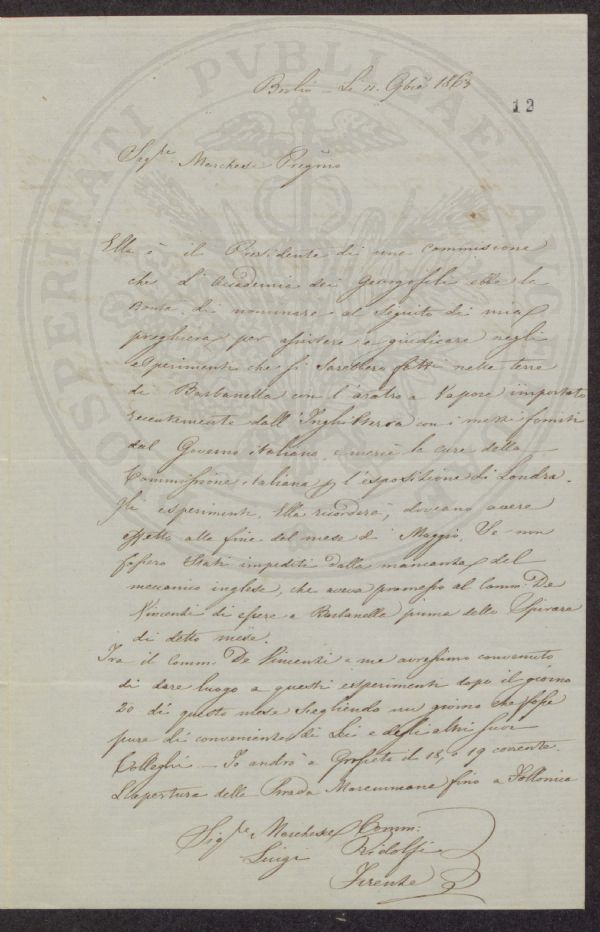 PROSPERITATI PVBLICAE AVCTAE
Brolio – Li 11. 9bre 1863
12
Sigre. Marchese Pregmo
Ella è il Presidente di una commissione
che l'Accademia dei Georgofili ebbe la
Bontà di nominare al Seguito di mia
preghiera per assistere e giudicare negli
esperimenti che si Sarebbero fatti nelle terre
di Barbanella con l'aratro a Vapore importato
recentemente dall'Inghilterra con i mezzi forniti
dal Governo italiano, e mercè la cure della
Commissione italiana p l'esposizione di Londra.
Gli esperimenti, Ella ricorderà, dovevano avere
effetto alla fine del mese di Maggio, Se non
fossero Stati impediti dalla mancanza del
meccanico inglese, che aveva promesso al Comm: De
Vincenzi di essere a Barbanella prima dello Spirare
di detto mese.
Tra il Comm: De Vincenzi e me avressimo convenuto
di dare luogo a questi esperimenti dopo il giorno
20 di questo mese Scegliendo un giorno che fosse
pure di convenienza di Lei e degli altri suoi
Colleghi – Io andrò a Grosseto il 18, o 19 corrente.
L'apertura della Strada Maremmana fino a Follonica
Sigre Marchese Comm:
Luigi Ridolfi
Firenze